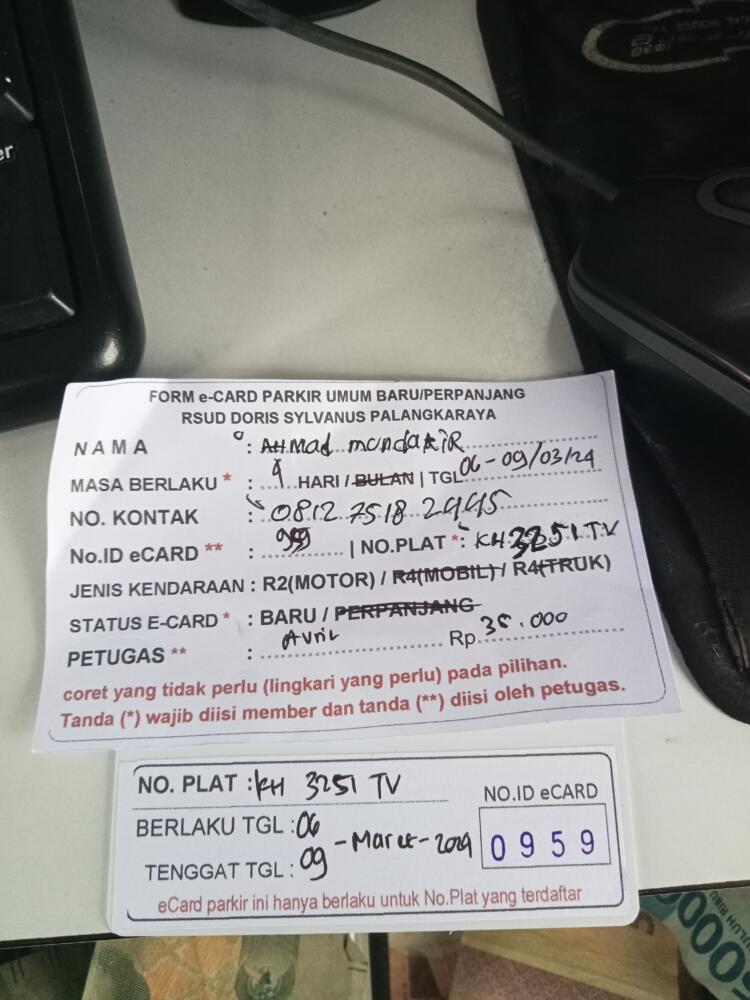 er
FORM e-CARD PARKIR UMUM BARU/PERPANJANG
RSUD DORIS SYLVANUS PALANGKARAYA
NAMA : AHMad mundakiR
MASA BERLAKU * : 4 HARI / BULAN | TGL 06-09/03/24
NO. KONTAK : 0812 7518 2445
No.ID eCARD ** : 959 | NO.PLAT * : KH 3251 TV
JENIS KENDARAAN : R2(MOTOR) / R4(MOBIL) / R4(TRUK)
STATUS E-CARD * : BARU / PERPANJANG
PETUGAS ** : Avril Rp. 35.000
coret yang tidak perlu (lingkari yang perlu) pada pilihan.
Tanda (*) wajib diisi member dan tanda (**) diisi oleh petugas.
NO. PLAT : KH 3251 TV
NO.ID eCARD
BERLAKU TGL : 06
- Maret - 2024
0959
TENGGAT TGL : 09
eCard parkir ini hanya berlaku untuk No.Plat yang terdaftar